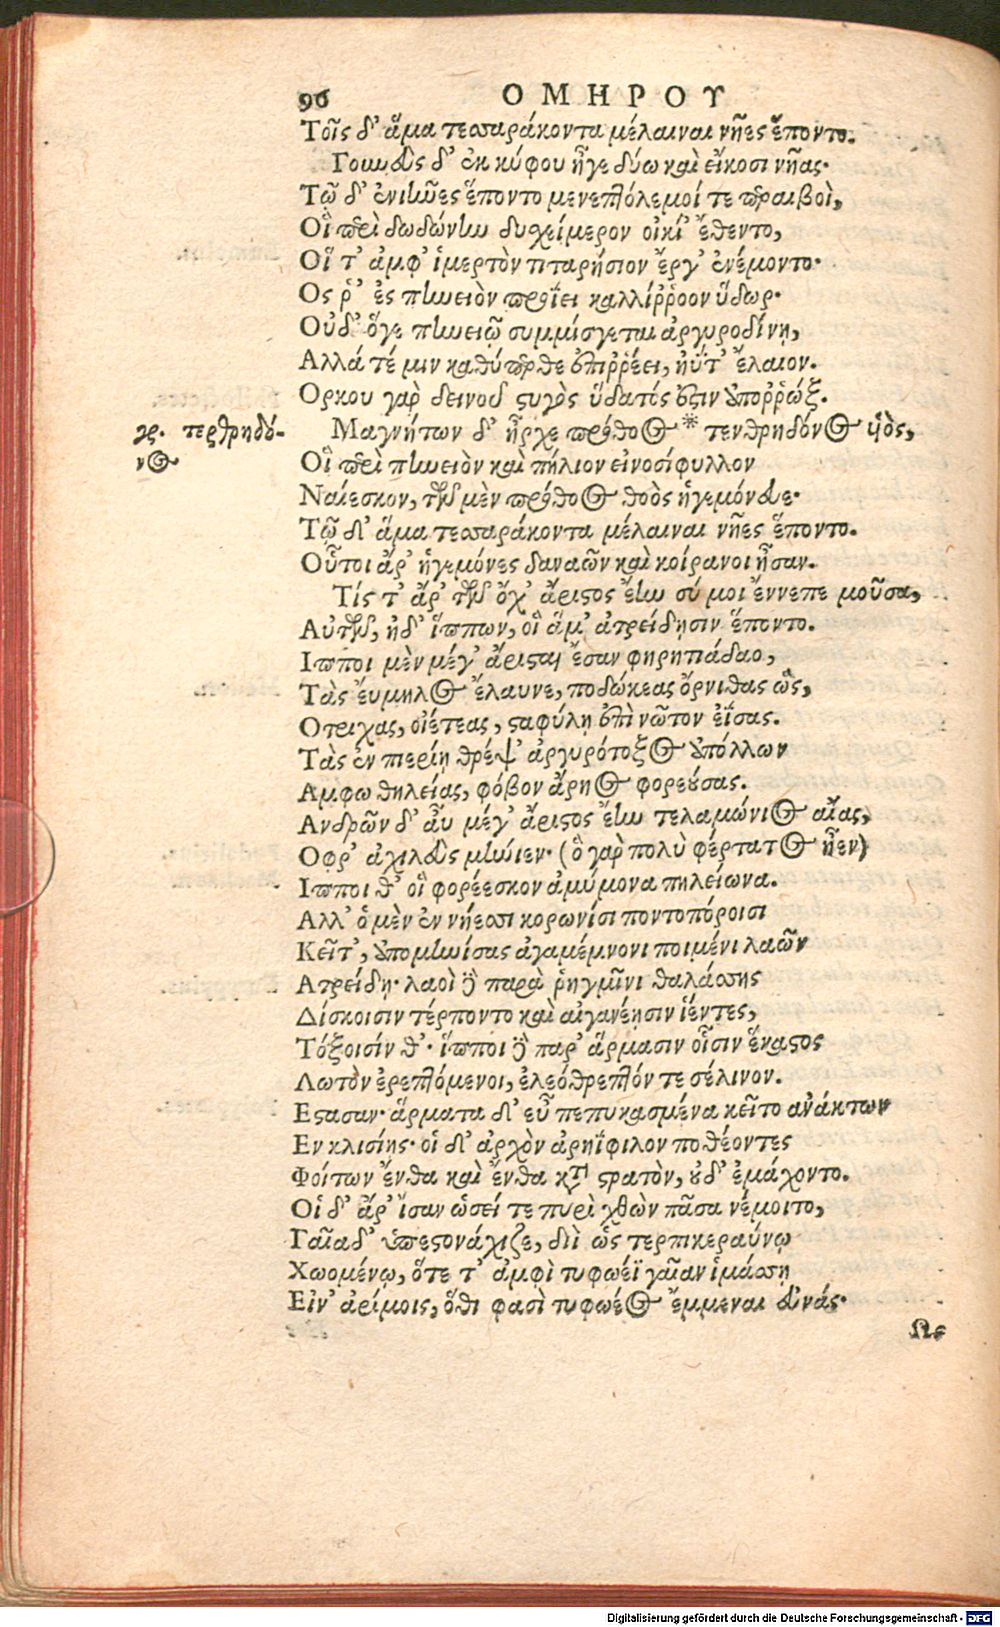 96 ΟΜΗΡΟΥ
Τοῖς δ' ἅμα τεσσαράκοντα μέλαιναι νῆες ἕποντο.
Γουνεὺς δ' ἐκ κύφου ἦγε δύω καὶ εἴκοσι νῆας·
Τῷ δ' ἐνιῆνες ἕποντο μενεπτόλεμοί τε περαιβοὶ,
Οἳ περὶ δωδώνην δυχείμερον οἰκί' ἔθεντο,
Οἵ τ' ἀμφ' ἱμερτὸν τιταρήσιον ἔργ' ἐνέμοντο·
Ος ῥ' ἐς πηνειὸν προΐει καλλίῤῥοον ὕδωρ·
Οὐδ' ὅγε πηνειῷ συμμίσγεται ἀργυροδίνῃ,
Αλλά τέ μιν καθύπερθε ἐπιῤῥέει, ἠΰτ' ἔλαιον.
Ορκου γὰρ δεινοῦ στυγὸς ὕδατός ἐστιν ἀποῤῥώξ.
Μαγνήτων δ' ἦρχε πρόθοος * τενθρηδόνος υἱὸς,
γρ. τερθρηδό-
νος
Οἳ περὶ πηνειὸν καὶ πήλιον εἰνοσίφυλλον
Ναίεσκον, τῶν μὲν πρόθοος θοὸς ἡγεμόνευε·
Τῷ δ' ἅμα τεσσαράκοντα μέλαιναι νῆες ἕποντο.
Οὗτοι ἄρ' ἡγεμόνες δαναῶν καὶ κοίρανοι ἦσαν.
Τίς τ' ἂρ' τῶν ὄχ' ἄριστος ἔην σύ μοι ἔννεπε μοῦσα,
Αὐτῶν, ἠδ' ἵππων, οἳ ἅμ' ἀτρείδῃσιν ἕποντο.
Ιπποι μὲν μέγ' ἄρισται ἔσαν φηρητιάδαο,
Τὰς ἔυμηλος ἔλαυνε, ποδώκεας ὄρνιθας ὣς,
Οτριχας, οἰέτεας, σταφύλῃ ἐπὶ νῶτον ἐΐσας.
Τὰς ἐν πιερίῃ θρέψ' ἀργυρότοξος ἀπόλλων
Αμφω θηλείας, φόβον ἄρηος φορεούσας.
Ανδρῶν δ' ἆυ μέγ' ἄριστος ἔην τελαμώνιος αἴας,
Οφρ' ἀχιλεὺς μήνιεν· (ὃ γὰρ πολὺ φέρτατος ἦεν)
Ιπποι θ' οἳ φορέεσκον ἀμύμονα πηλείωνα.
Αλλ' ὁ μὲν ἐν νήεσσι κορωνίσι ποντοπόροισι
Κεῖτ', ἀπομηνίσας ἀγαμέμνονι ποιμένι λαῶν
Ατρείδῃ· λαοὶ δὲ παρὰ ῥηγμῖνι θαλάσσης
Δίσκοισιν τέρποντο καὶ αἰγανέῃσιν ἱέντες,
Τόξοισίν θ'· ἵπποι δὲ παρ' ἅρμασιν οἷσιν ἕκαστος
Λωτὸν ἐρεπτόμενοι, ἐλεόθρεπτόν τε σέλινον.
Εστασαν· ἅρματα δ' εὖ πεπυκασμένα κεῖτο ἀνάκτων
Εν κλισίῃς· οἱ δ' ἀρχὸν ἀρηΐφιλον ποθέοντες
Φοίτων ἔνθα καὶ ἔνθα κατὰ στρατὸν, οὐδ' ἐμάχοντο.
Οἱ δ' ἄρ' ἴσαν ὡσεί τε πυρὶ χθὼν πᾶσα νέμοιτο,
Γαῖα δ' ὑπεστονάχιζε, διὶ ὣς τερπικεραύνῳ
Χωομένῳ, ὅτε τ' ἀμφὶ τυφωέϊ γαῖαν ἱμάσσῃ
Εἰν' ἀρίμοις, ὅθι φασὶ τυφωέος ἔμμεναι εὐνάς·
Ως
Digitalisierung gefördert durch die Deutsche Forschungsgemeinschaft - DFG